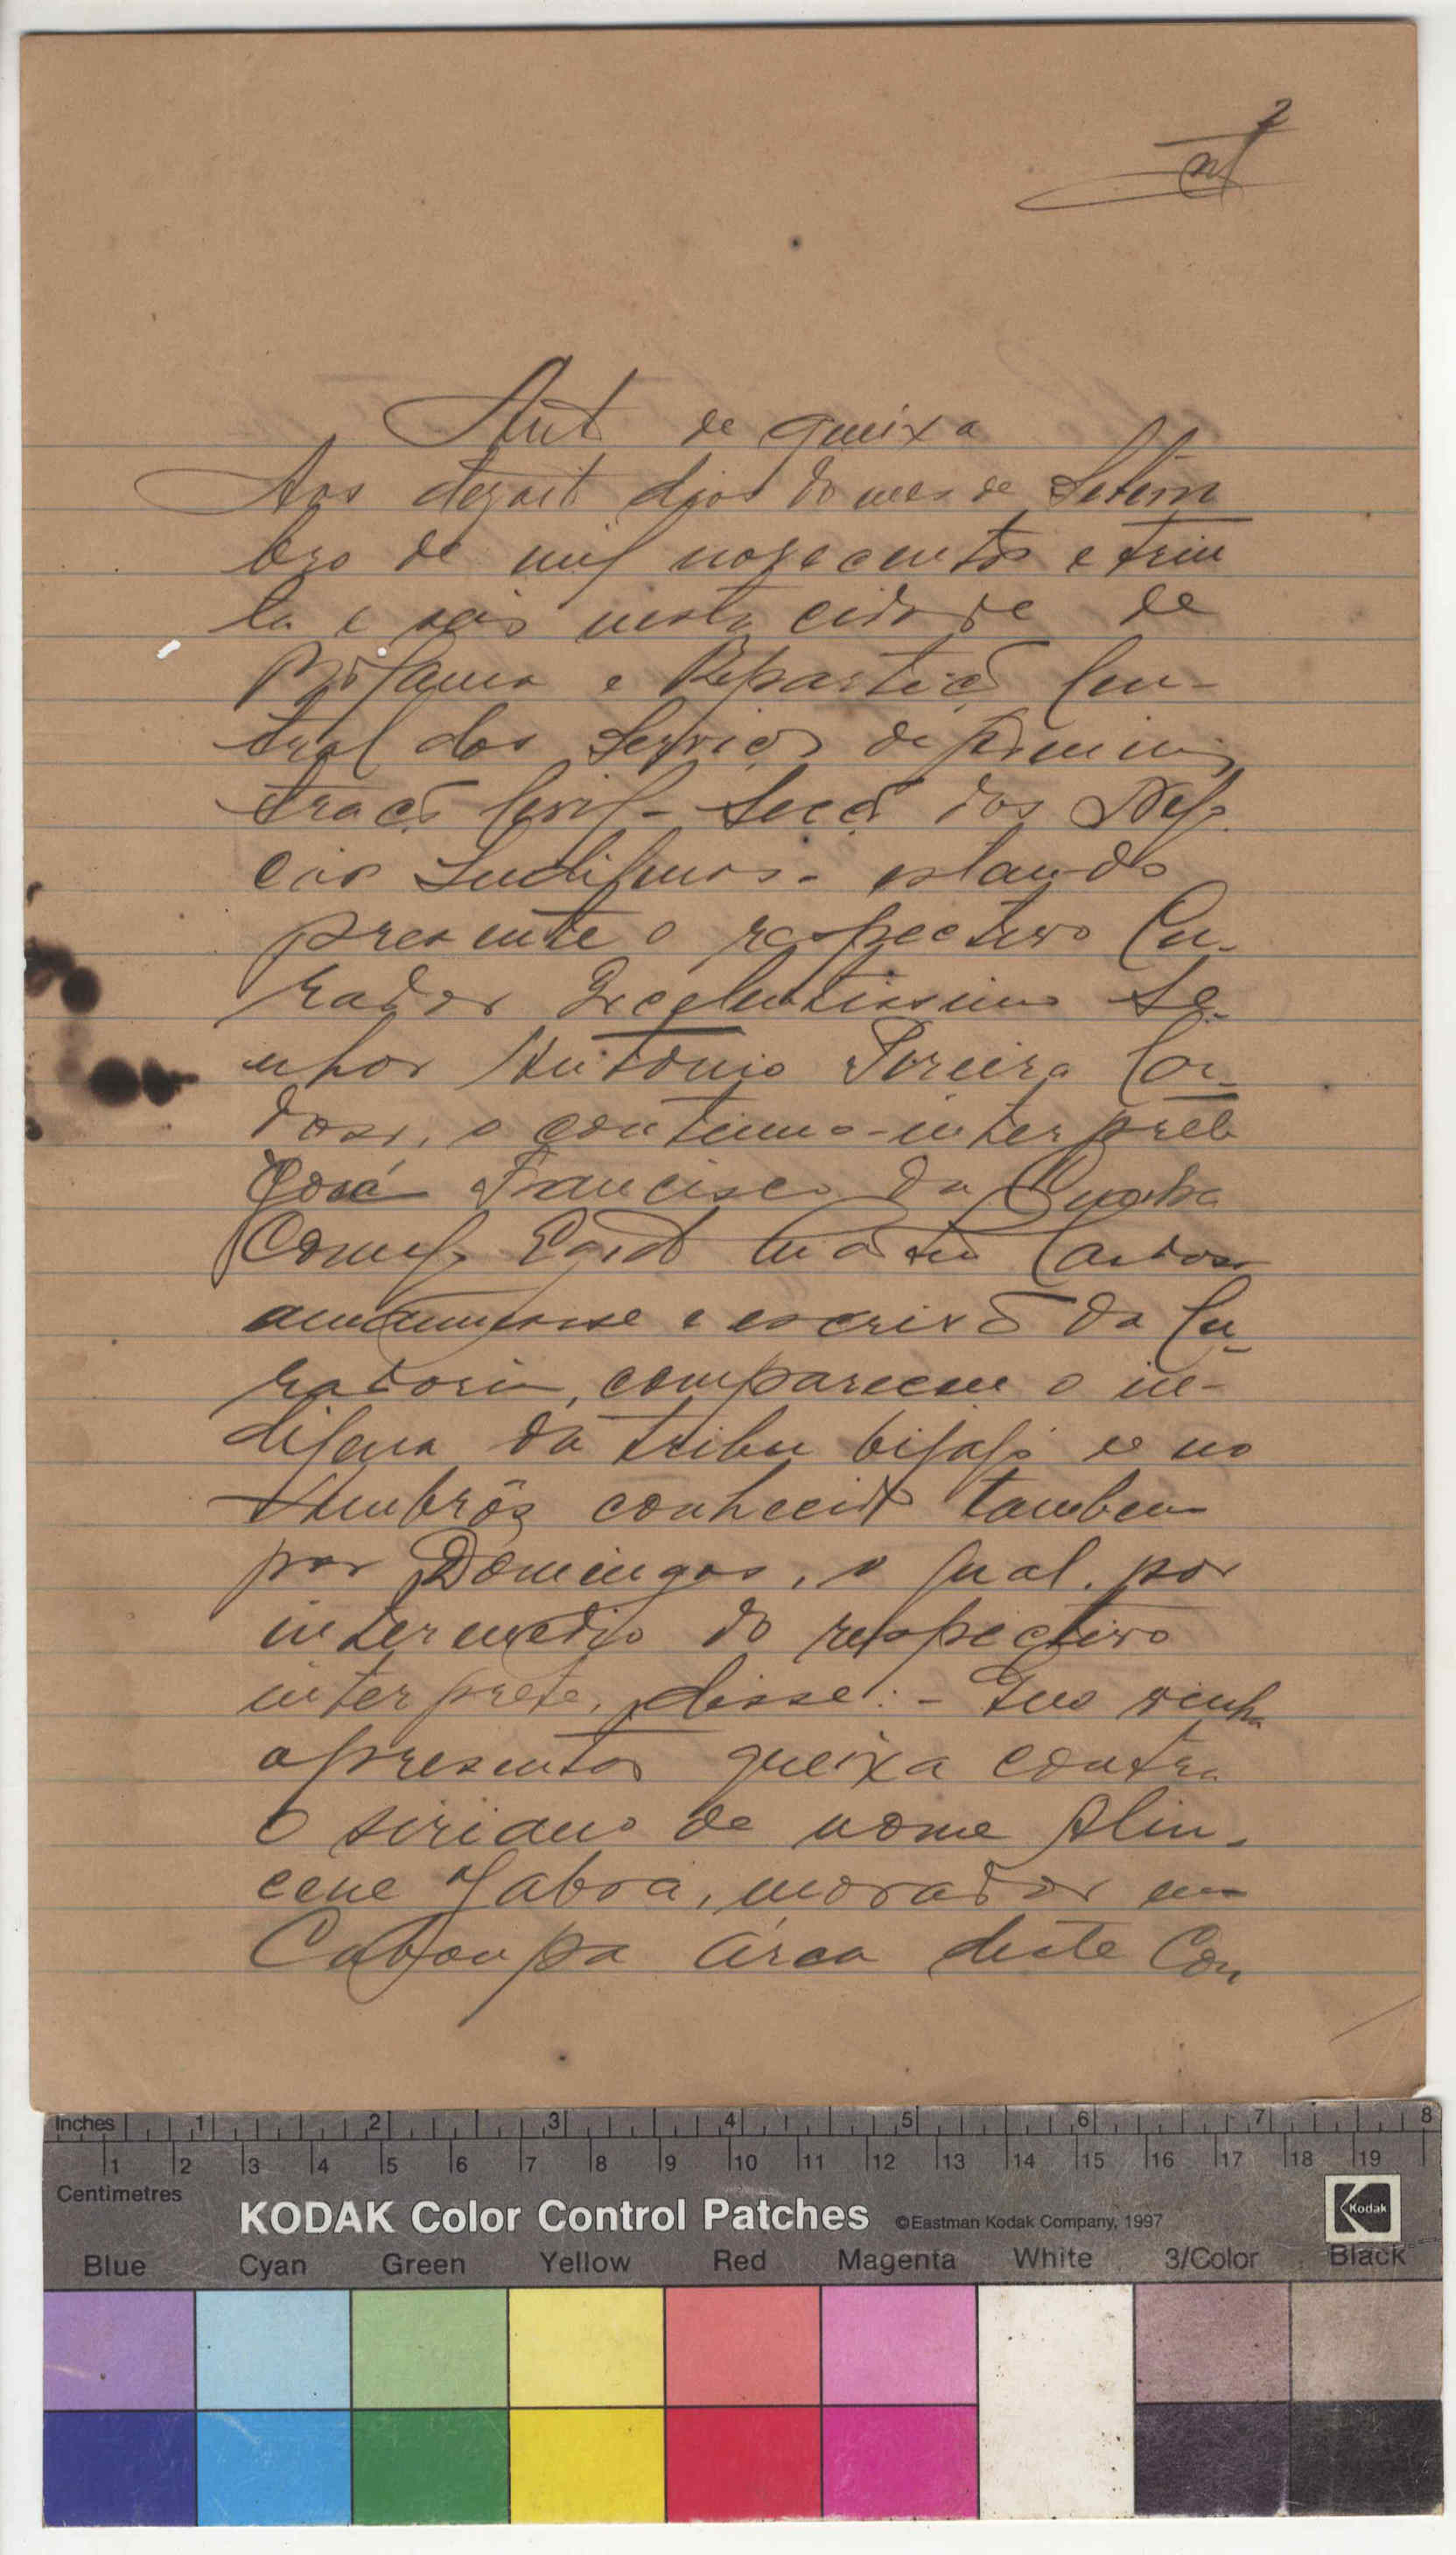 2
Auto de queixa
Aos dezoito dias do mes de Setem
bro de mil novecentos e trin
ta e seis nesta cidade de
Bolama e Repartição Cen-
tral dos Serviços de
tração Civil - Secção dos Nego
cios Indigenas - estando
presente o respectivo Cu-
rador Excelentissimo Se-
nhor Antonio Pereira Car-
doso, o continuo-interprete
José Francisco da Cunha
comigo Cardoso
amanuense e escrivão da Cu-
radoria, compareceu o in-
digena da tribu bijagó de no
conhecido tambem
por Domingos, o qual, por
intermedio do respectivo
interprete, disse: - Que vinha
apresentar queixa contra
o siriano de nome Alin-
cene Jabrá, morador em
area deste Con
Inches 1 2 3 4 5 6 7 8
1 2 3 4 5 6 7 8 9 10 11 12 13 14 15 16 17 18 19
Centimetres
KODAK Color Control Patches ©Eastman Kodak Company, 1997 Kodak
Blue Cyan Green Yellow Red Magenta White 3/Color Black